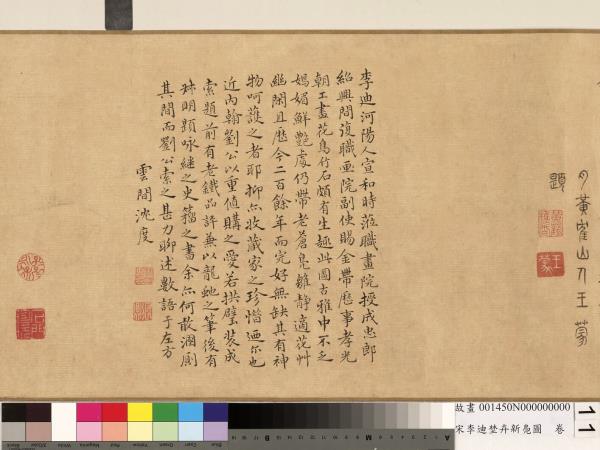 月黃鶴山人王蒙
題
李迪河陽人宣和時蒞職畫院授成忠郎
紹興間復職画院副使賜金帶歷事孝光
朝工畫花鳥竹石頗有生趣此圖古雅中不乏
嫣媚鮮艷處仍帶老蒼鳧雛靜適花艸
幽閑且歷今二百餘年而完好無缺其有神
物呵護之者耶抑亦收藏家之珍惜迺尔也
近內翰劉公以重值購之愛若拱璧裝成
索題前有老鐵品評兼以龍虵之筆後有
叔明題咏継之史籀之書余亦何敢溷厠
其間而劉公索之甚力聊述數語于左方
雲間沈度
王蒙
故畫 001450N000000000
宋李迪埜卉新鳧圖 卷
11